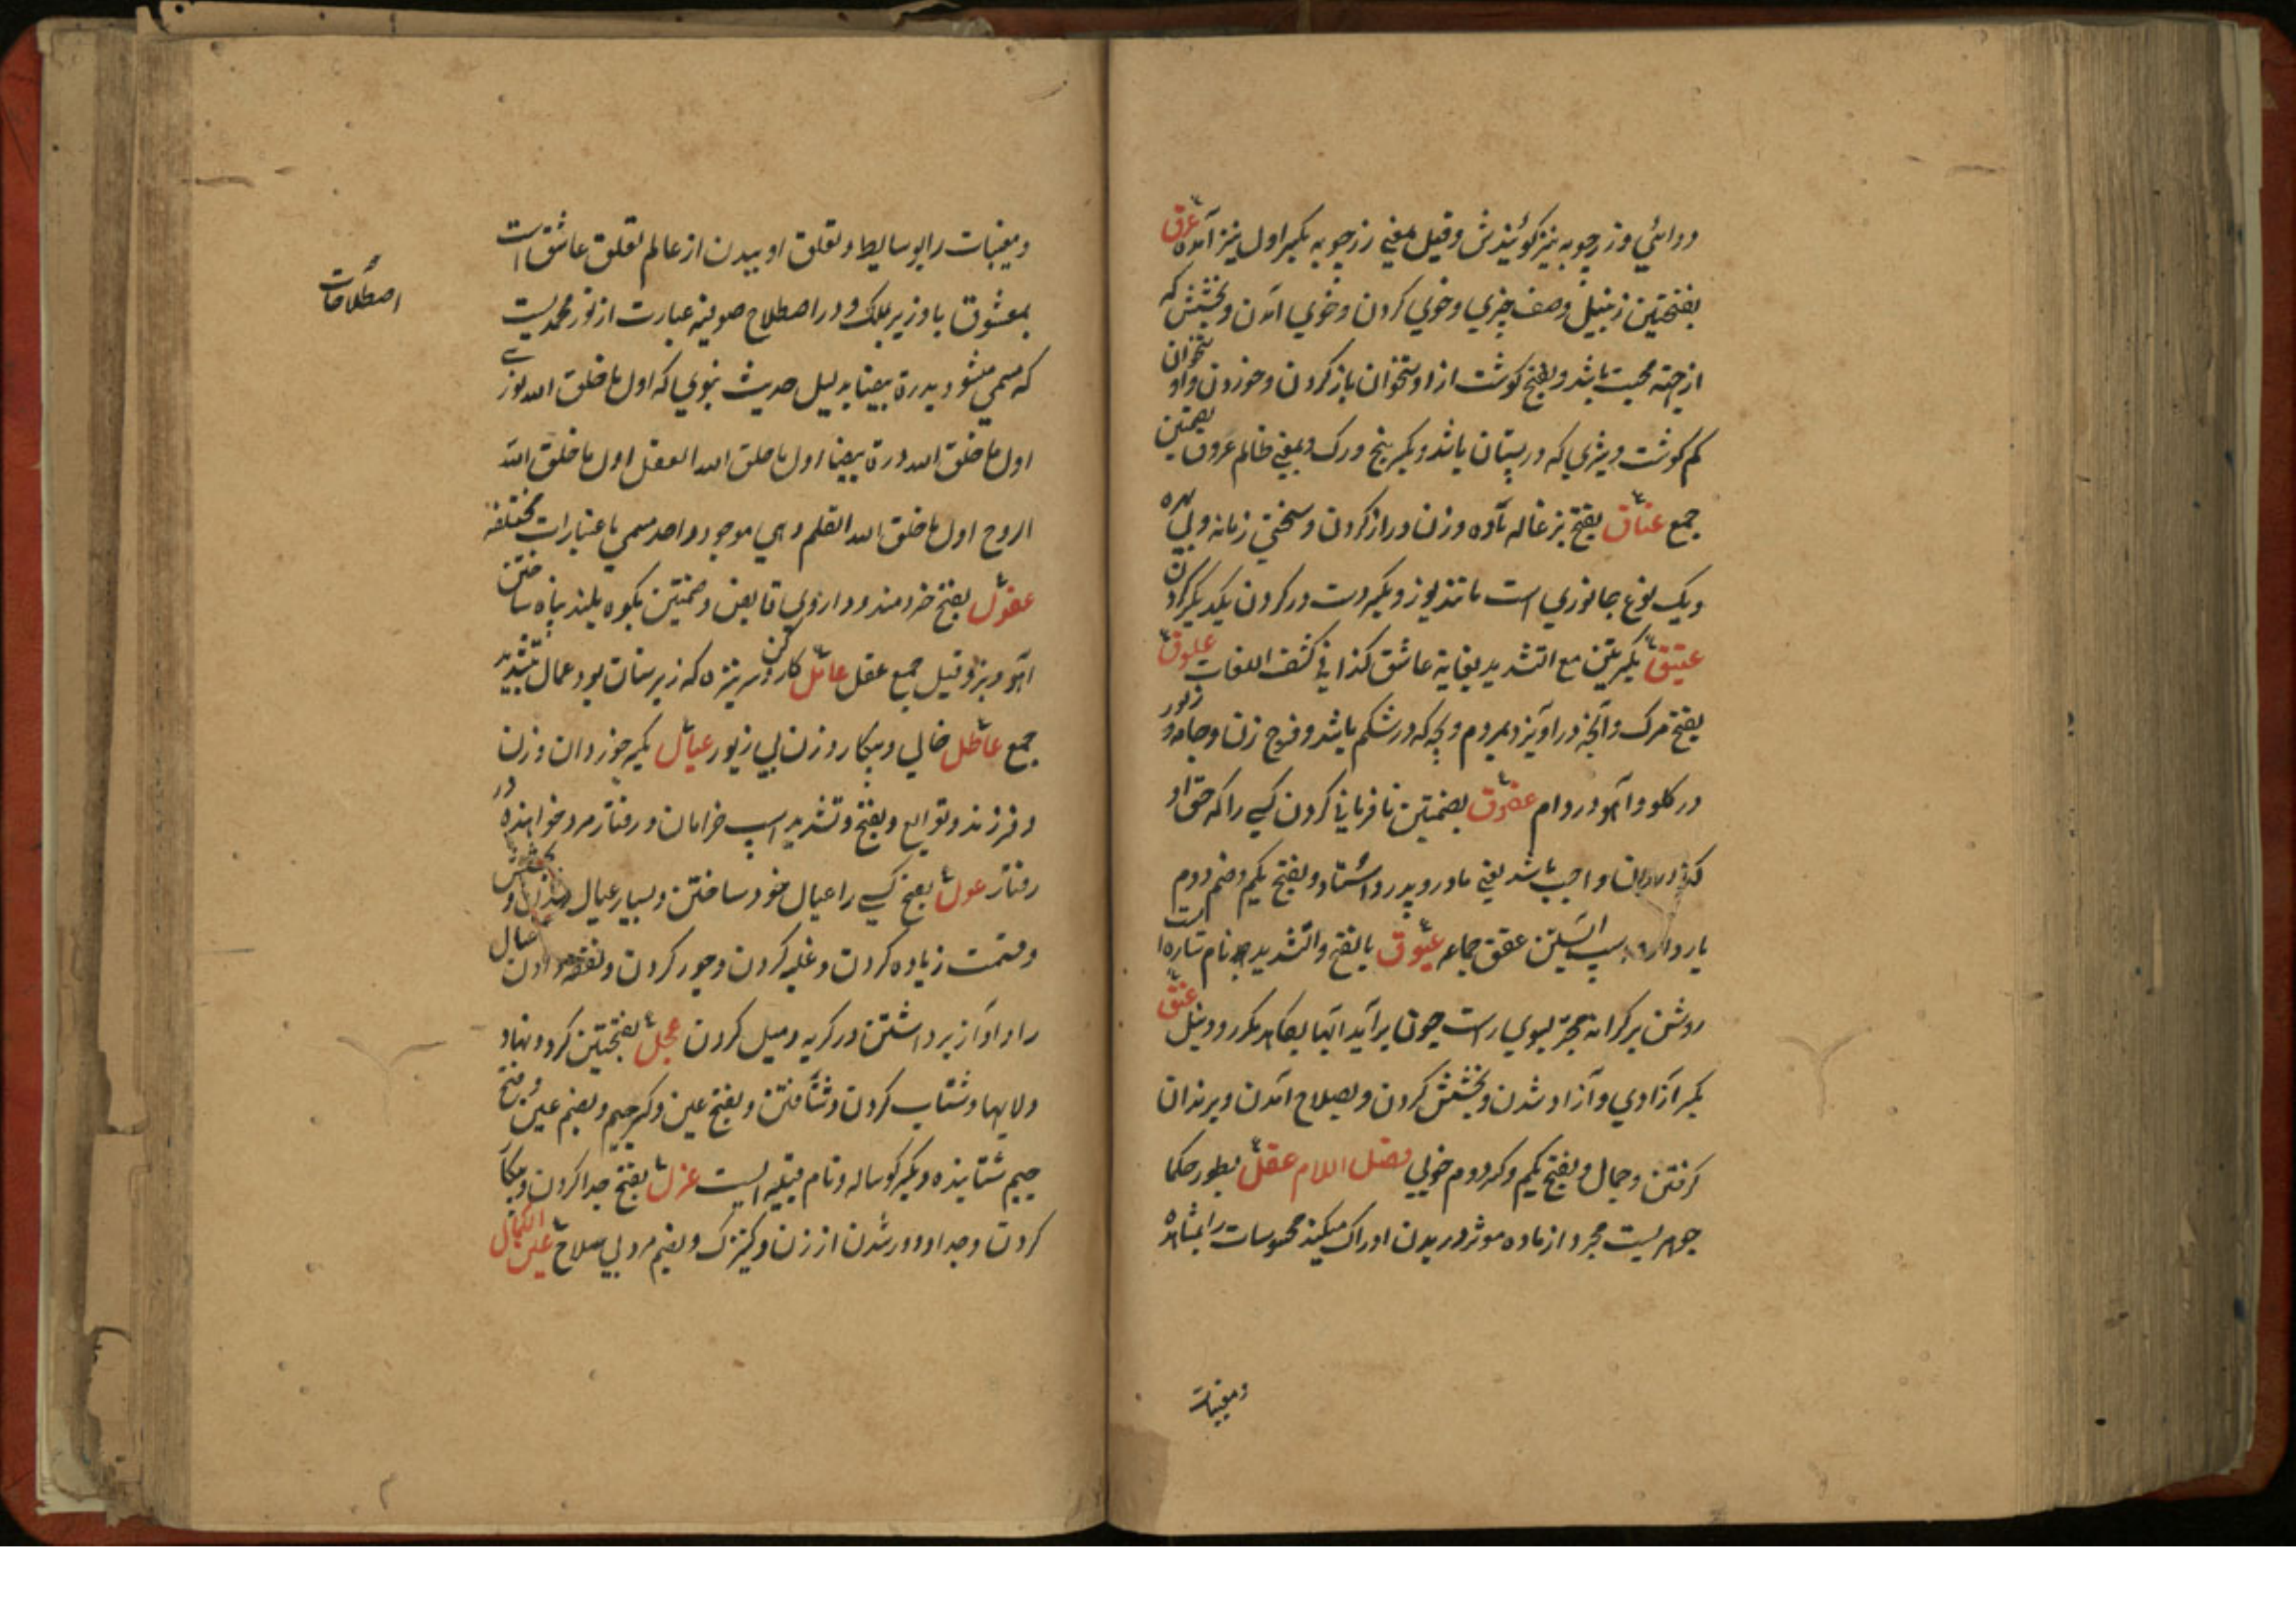 دوائی و زرچوبه نیز کویندش و قیل بمعنی زرچوبه بکسر اول نیز آمده عرق
بفتحتین زنبیل وصف چیزی و خوی کردن و خوی آمدن و بخشش که
از جهته محبت باشد و بفتح کوشت از استخوان باز کردن و خوردن و استخوان
کم کوشت و شیری که در پستان باشد و بکسر بیخ و رک و بمعنی ظالم عروق بضمتین
جمع عناق بفتح بزغاله ماده و زن دراز کردن و سختی زمانه و بی بهره
و یک نوع جانوری است مانند یوز و بکسر دست در کردن یکدیکر کردن
عتیق بکسرتین مع التشدید بغایة عاشق کذا فی کشف اللغات علوق
بفتح مرک و آنچه در آویزد بمردم و بچه که در شکم باشد و فرج زن و جامه و زلور
در کلو و آهو در دام عقوق بضمتین نافرمانی کردن کسی را که حق او
واجب باشد یعنی مادر و پدر و استاد و بفتح یکم و ضم دوم
باردار اسپ آبستن عقق جماعه عیوق بالفتح والتشدید نام ستاره است
روشن بر کرانه مجره بسوی راست چون برآید آبها بکاهد مکر رود نیل عتق
بکسر آزادی و آزاد شدن و بخشش کردن و بصلاح آمدن و پرندان
کرفتن و جمال و بفتح یکم و کسر دوم خوبی فصل اللام عقل بطور حکما
جوهریست مجرد از ماده موثر در بدن ادراک میکند محسوسات را بمشاهده
و مغیبات
و مغیبات را بوسایط و تعلق او ببدن از عالم تعلق عاشق است
بمعشوق یا وزیر بملک و در اصطلاح صوفیه عبارت از نور محمدیست
اصطلاحات
که مسمی میشود بدرة بیضا بدلیل حدیث نبوی که اول ما خلق الله نوری
اول ما خلق الله درة بیضا اول ما خلق الله العقل اول ما خلق الله
الروح اول ما خلق الله القلم و هی موجود واحد مسمی باعتبارات مختلفه
عقول بفتح خردمند و داروی قابض و ضمتین بکوه بلند پناه ساختن
آهو و بز و قیل جمع عقل عامل کارکن و سر نیزه که زیر سنان بود عمال بتشدید
جمع عاطل خالی و بیکار و زن بی زیور عیال بکسر جوز دان و زن
و فرزند و توابع و بفتح و تشدید اسپ خرامان و رفتار مرد خرامنده در
رفتار عول بفتح کسی را عیال خود ساختن و بسیار عیال شدن و بخشش
و قسمت زیاده کردن و غلبه کردن و جور کردن و نفقه دادن عیال
را و آواز برداشتن در کریه و میل کردن عجل بفتحتین کردونها و
ولایها و شتاب کردن و شتافتن و بفتح عین و کسر جیم و بضم عین و فتح
جیم شتابنده و بکسر کوساله و نام قبیله ایست عزل بفتح جدا کردن و بیکار
کردن و جدا و دور شدن از زن و کنیزک و بضم مرد بی سلاح عین الکمال